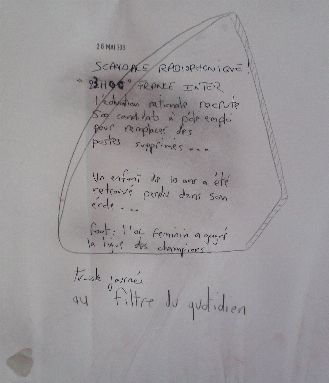 26 MAI
SCANDALE RADIOPHONIQUE!
FRANCE INTER
L'éducation nationale recrute
500 candidats à pôle emploi
pour remplacer des
postes supprimés ...
Un enfant de 10 ans a été
retrouvé pendu dans son
école ...
Foot: l'OL féminin a gagné
la ligue des champions.
au filtre du quotidien